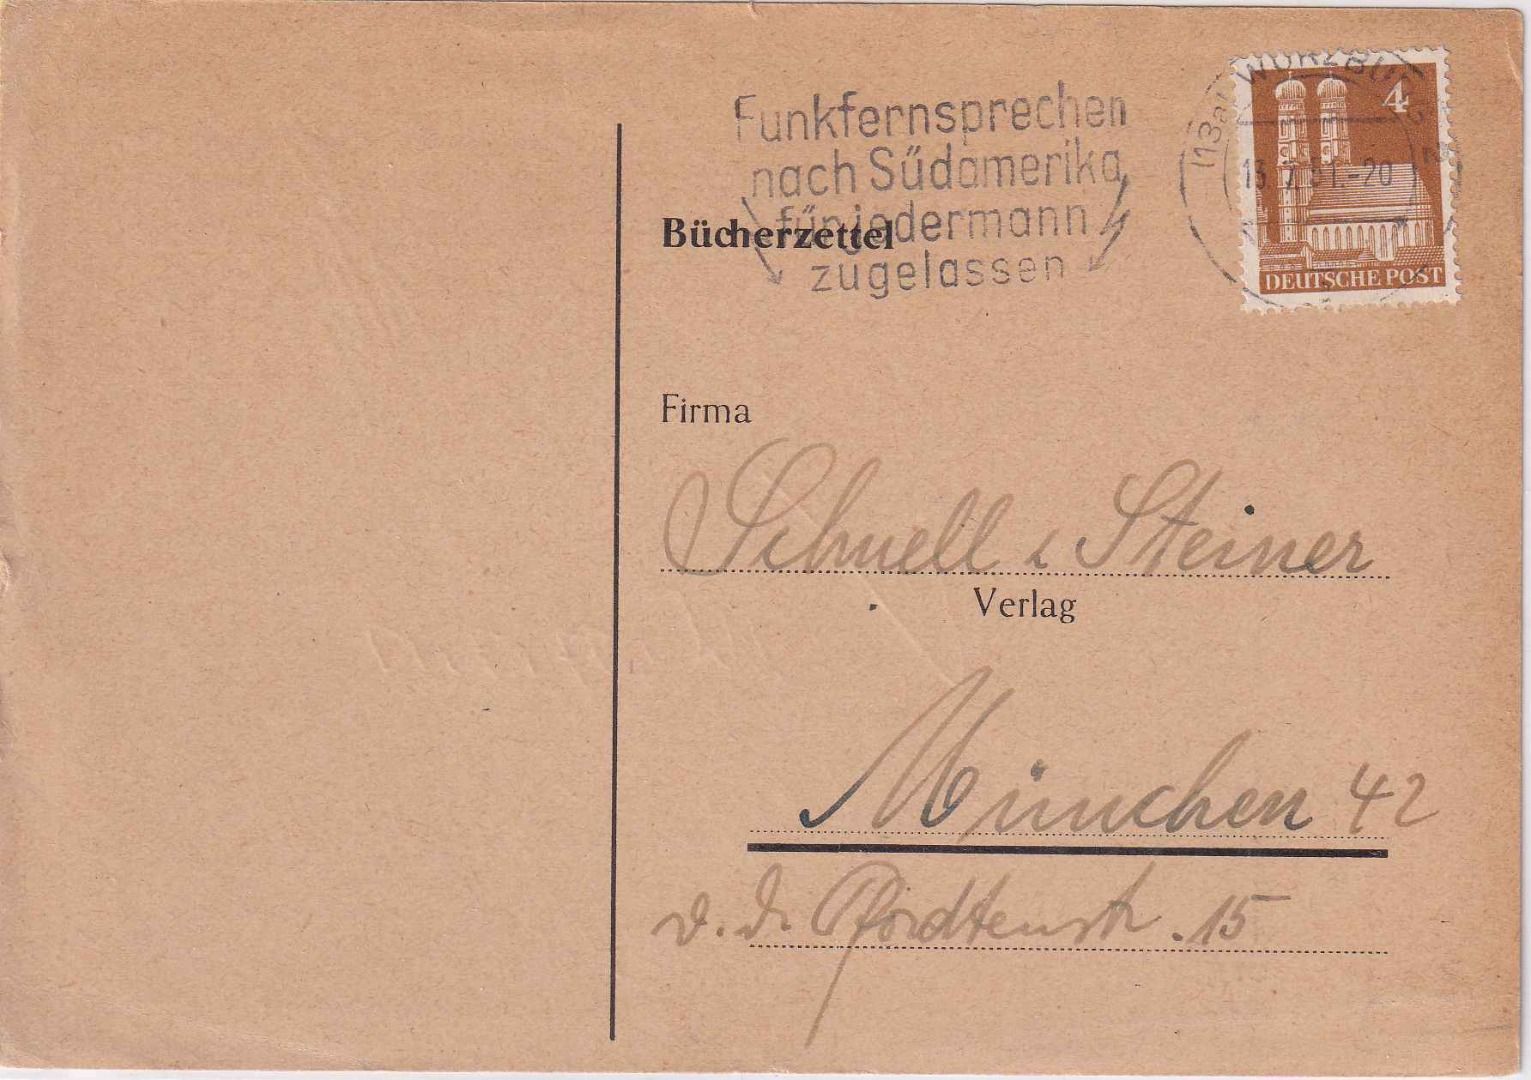 Funkfernsprechen
nach Südamerika
für jedermann
zugelassen
(13a) WÜRZBURG 2
13.7.51.-20
4
DEUTSCHE POST
Bücherzettel
Firma
Schnell & Steiner
Verlag
München 42
v. d. Pfordtenstr. 15